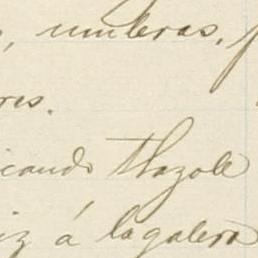 , umbras,
res.
icando tlazole
iz á la galera